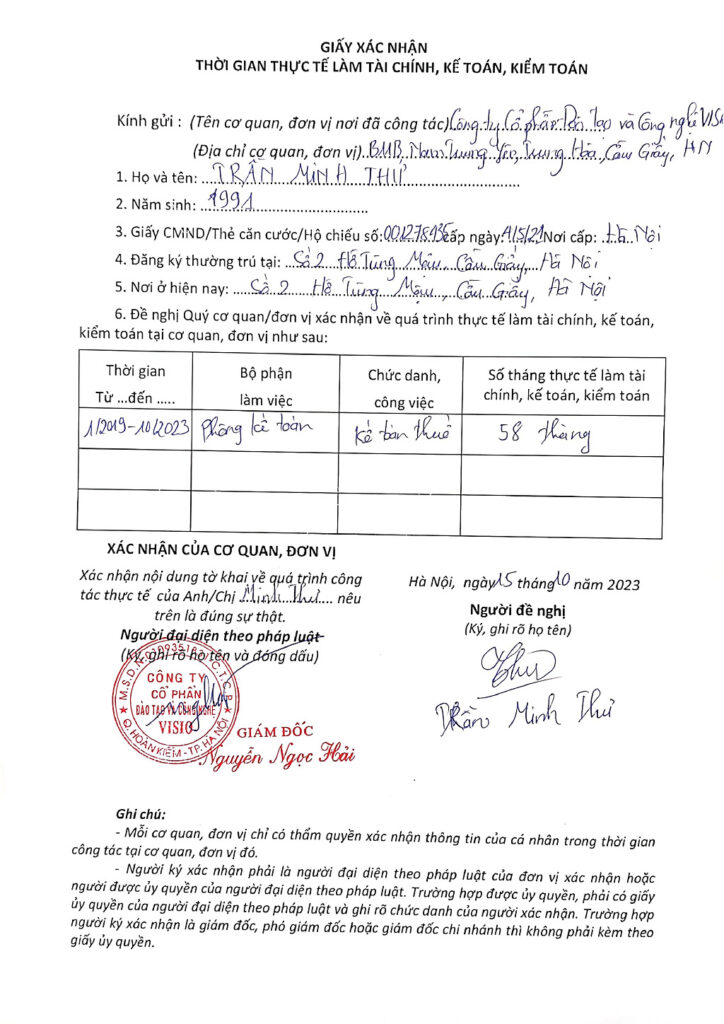 GIẤY XÁC NHẬN
THỜI GIAN THỰC TẾ LÀM TÀI CHÍNH, KẾ TOÁN, KIỂM TOÁN
Kính gửi : (Tên cơ quan, đơn vị nơi đã công tác) Công ty Cổ phần Đào Tạo và Công nghệ VISI
(Địa chỉ cơ quan, đơn vị) Nam Trung Yên, Trung Hòa, Cầu Giấy, HN
1. Họ và tên: TRẦN MINH THƯ
2. Năm sinh: 1991
3. Giấy CMND/Thẻ căn cước/Hộ chiếu số: cấp ngày: Nơi cấp: Hà Nội
4. Đăng ký thường trú tại: Số 2 Hồ Tùng Mậu, Cầu Giấy, Hà Nội
5. Nơi ở hiện nay: Số 2 Hồ Tùng Mậu, Cầu Giấy, Hà Nội
6. Đề nghị Quý cơ quan/đơn vị xác nhận về quá trình thực tế làm tài chính, kế toán,
kiểm toán tại cơ quan, đơn vị như sau:
Thời gian
Từ ...đến .....
Bộ phận
làm việc
Chức danh,
công việc
Số tháng thực tế làm tài
chính, kế toán, kiểm toán
1/2019-10/2023 Phòng kế toán Kế toán thuế 58 tháng
XÁC NHẬN CỦA CƠ QUAN, ĐƠN VỊ
Xác nhận nội dung tờ khai về quá trình công
tác thực tế của Anh/Chị Minh Thư nêu
trên là đúng sự thật.
Người đại diện theo pháp luật
(Ký, ghi rõ họ tên và đóng dấu)
CÔNG TY
CỔ PHẦN
ĐÀO TẠO VÀ CÔNG NGHỆ
VISIO
Q. HOÀN KIẾM - TP. HÀ NỘI
GIÁM ĐỐC
Nguyễn Ngọc Hải
Hà Nội, ngày 15 tháng 10 năm 2023
Người đề nghị
(Ký, ghi rõ họ tên)
Thư
Trần Minh Thư
Ghi chú:
- Mỗi cơ quan, đơn vị chỉ có thẩm quyền xác nhận thông tin của cá nhân trong thời gian
công tác tại cơ quan, đơn vị đó.
- Người ký xác nhận phải là người đại diện theo pháp luật của đơn vị xác nhận hoặc
người được ủy quyền của người đại diện theo pháp luật. Trường hợp được ủy quyền, phải có giấy
ủy quyền của người đại diện theo pháp luật và ghi rõ chức danh của người xác nhận. Trường hợp
người ký xác nhận là giám đốc, phó giám đốc hoặc giám đốc chi nhánh thì không phải kèm theo
giấy ủy quyền.